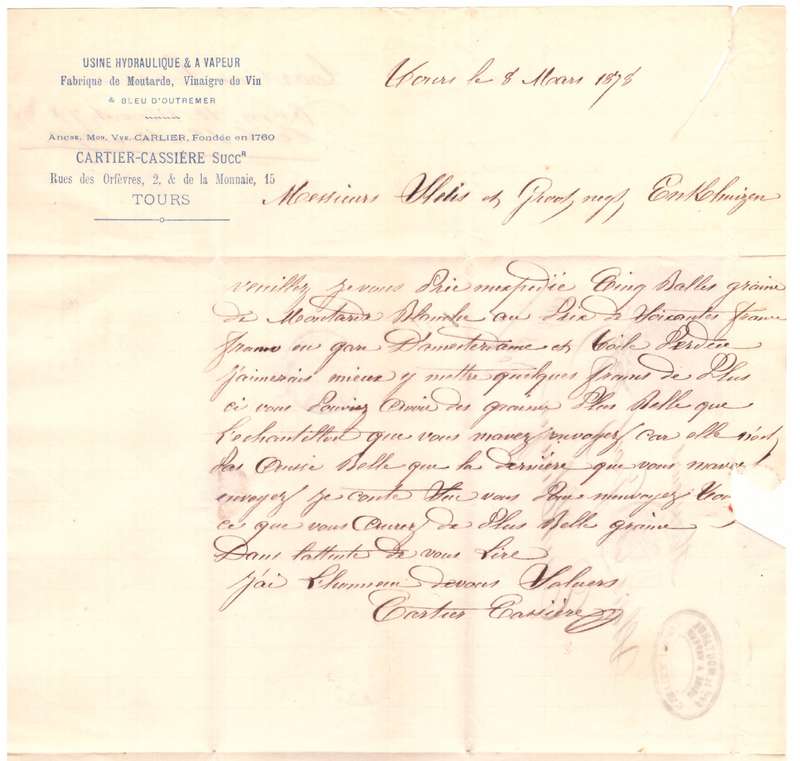 USINE HYDRAULIQUE & A VAPEUR
Fabrique de Moutarde, Vinaigre de Vin
& BLEU D'OUTREMER
Ancne. Mon. Vve. CARLIER, Fondée en 1760
CARTIER-CASSIÉRE SUCCR
Rues des Orfévres, 2, & de la Monnaie, 15
TOURS
Tours le 8 Mars 1878
Messieurs Sluis et Groot, negt, Enkhuizen
veuillez je vous Prie mexpedié Cinq Balles graine
de Moutarde Blanche au Prix de Soixantes
franco en gare D'amsterdame et Toile Perdue
j'aimerais mieux y mettre quelques frans de Plus
ci vous Pouviez avoir des graines Plus Belle que
L'echantillon que vous mavez envoyez car elle n'est
Pas aussi Belle que la dernière que vous mavez
envoyez je conte que vous menvoyez
ce que vous aurez de Plus Belle graine
Dans l'attente de vous Lire
j'ai L'honneur de vous Saluers
Cartier Cassière